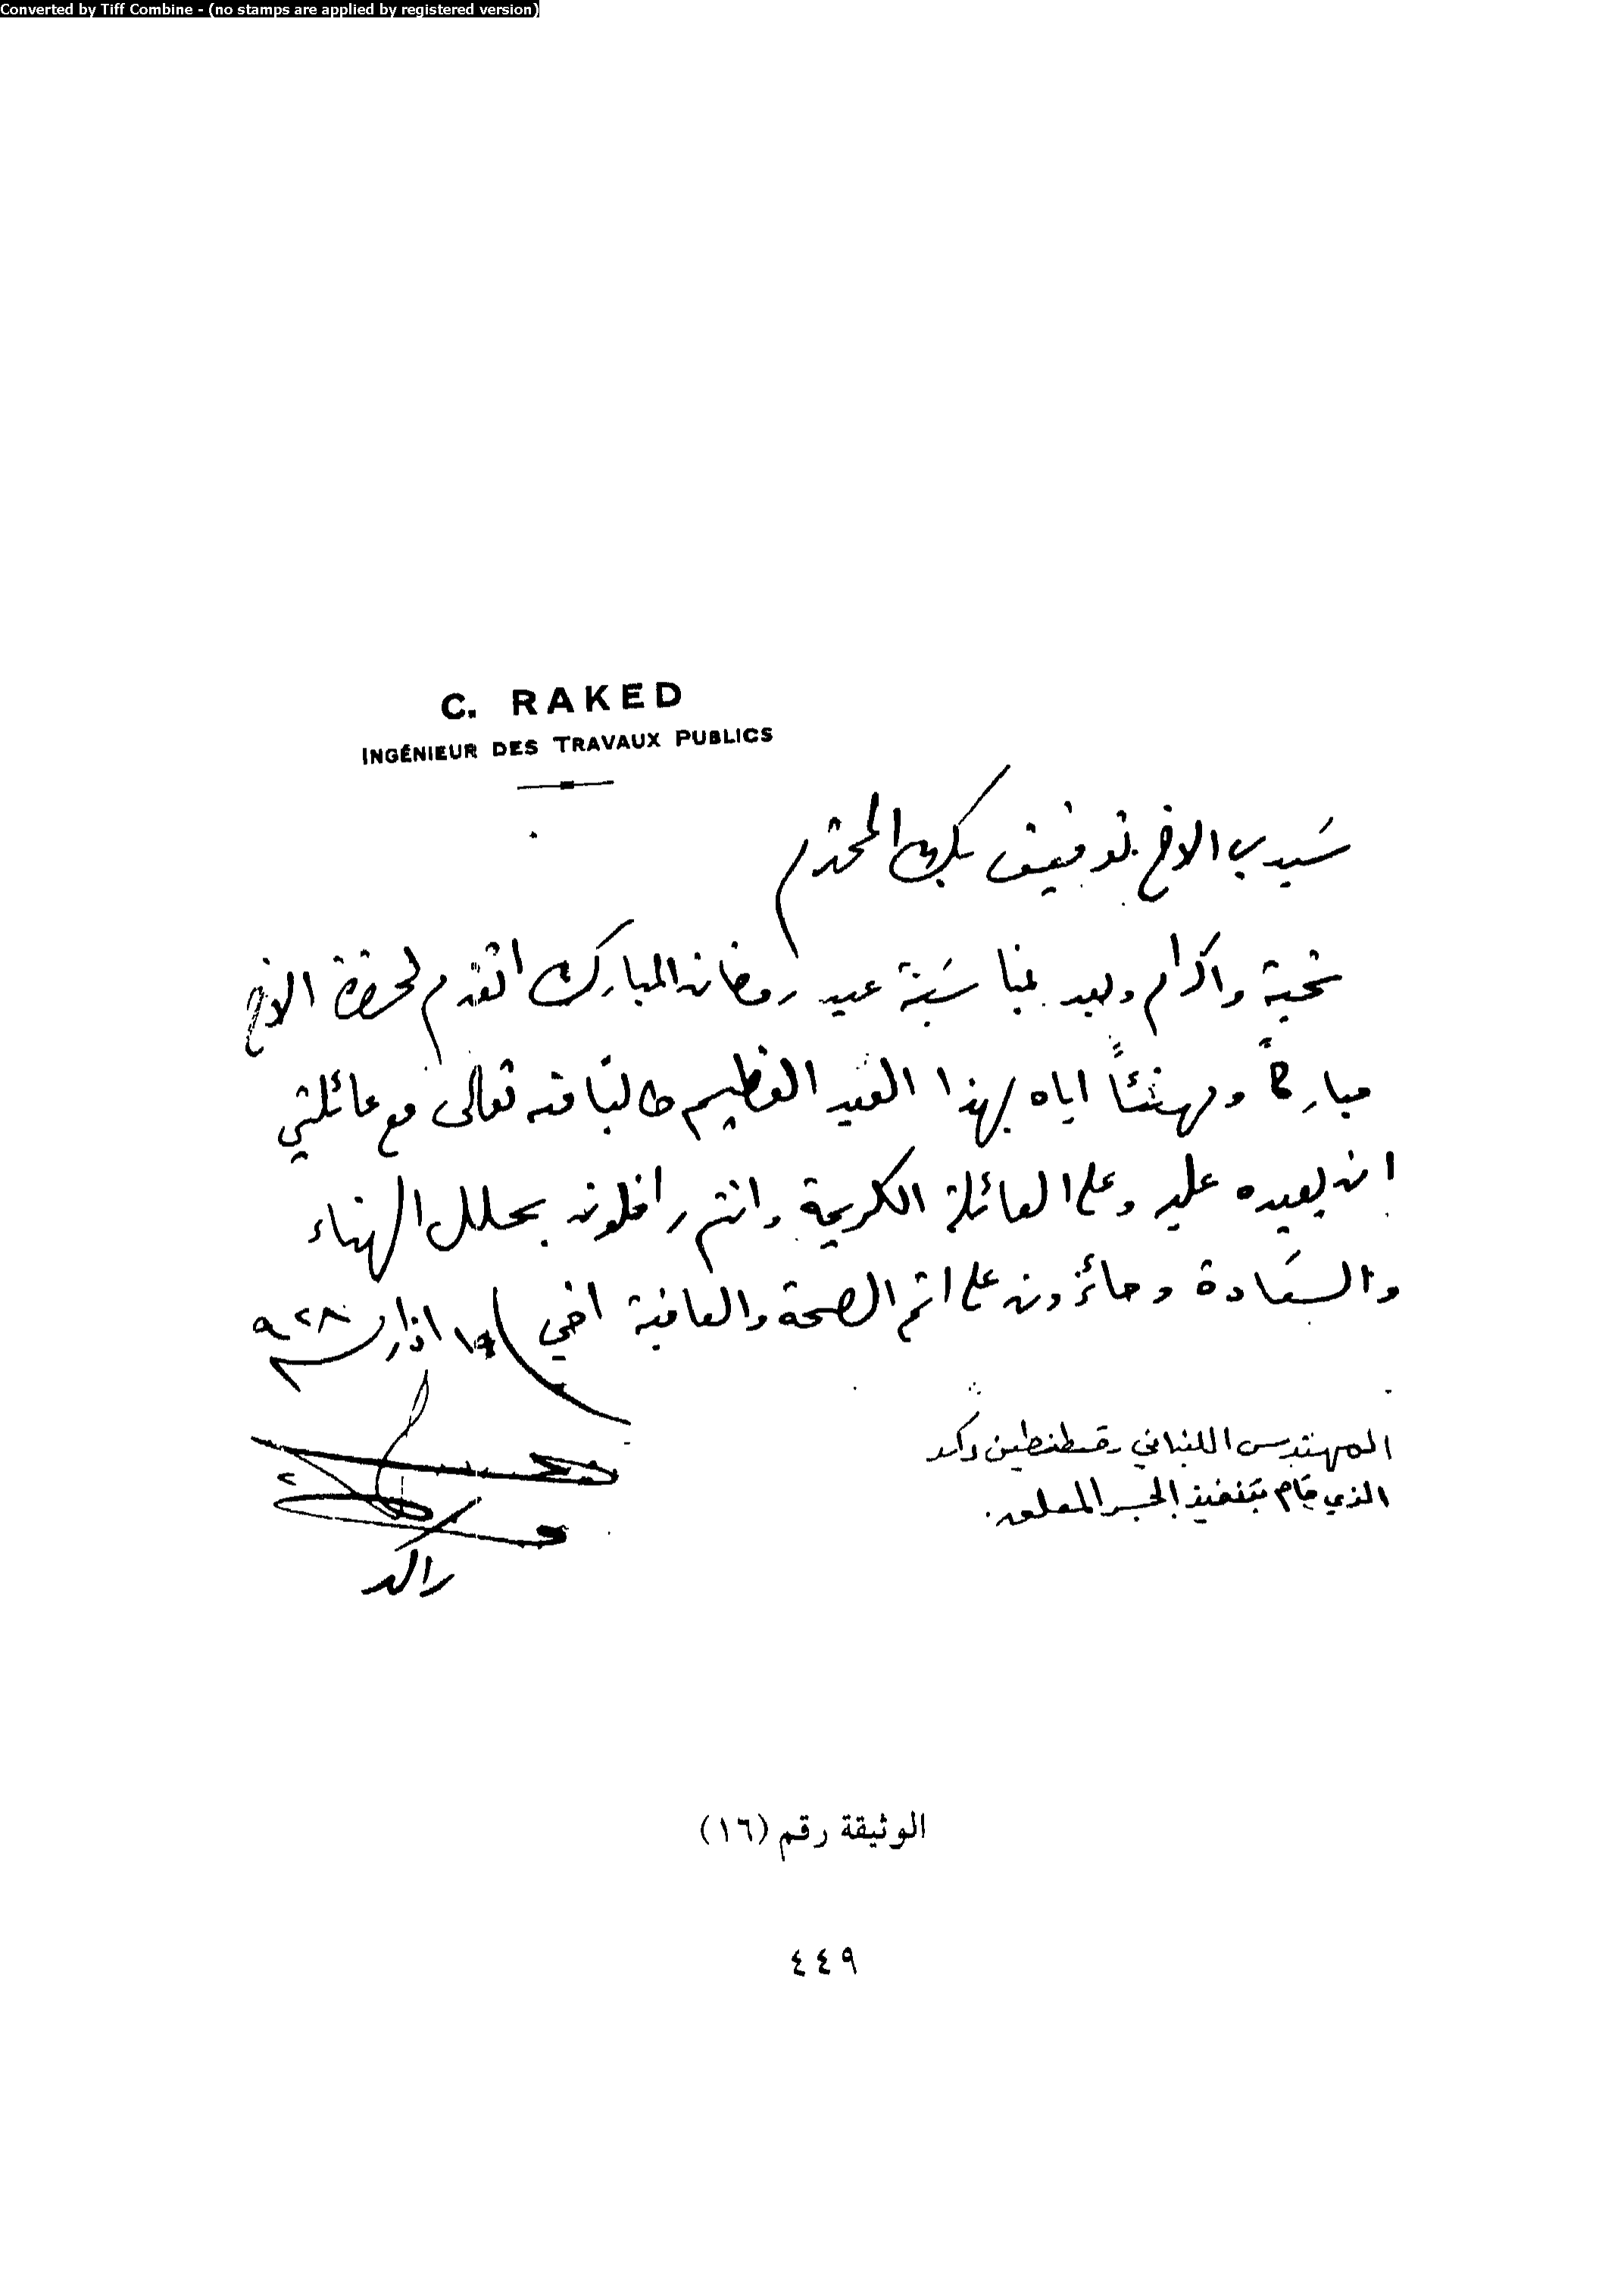 Converted by Tiff Combine - (no stamps are applied by registered version)
C. RAKED
INGÉNIEUR DES TRAVAUX PUBLICS
سيدي الاخ توفيق بك المحترم
تحية واكرام وبعد بمناسبة عيد رمضان المبارك اتقدم لحضرة الاخ
مباركاً ومهنئاً اياه بهذا العيد العظيم طالباً منه تعالى مع عائلتي
ان يعيده عليه وعلى العائلة الكريمة وانتم رافلون بحلل الهناء
والسعادة وحائزون على اتم الصحة والعافية اخي
اذار ٩٢٨
راكد
المهندس اللبناني قسطنطين راكد
الذي قام بتنفيذ الجسر المعلق.
الوثيقة رقم (١٦)
٤٤٩